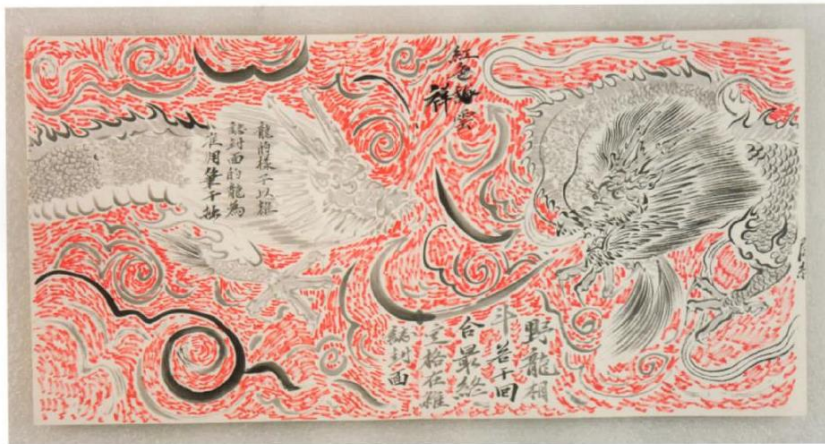 紅色雲
祥
龍的樣子以雜
誌封面的龍為
准用筆干拙
野龍相
斗若干回
合最終
定格在雜
誌封面